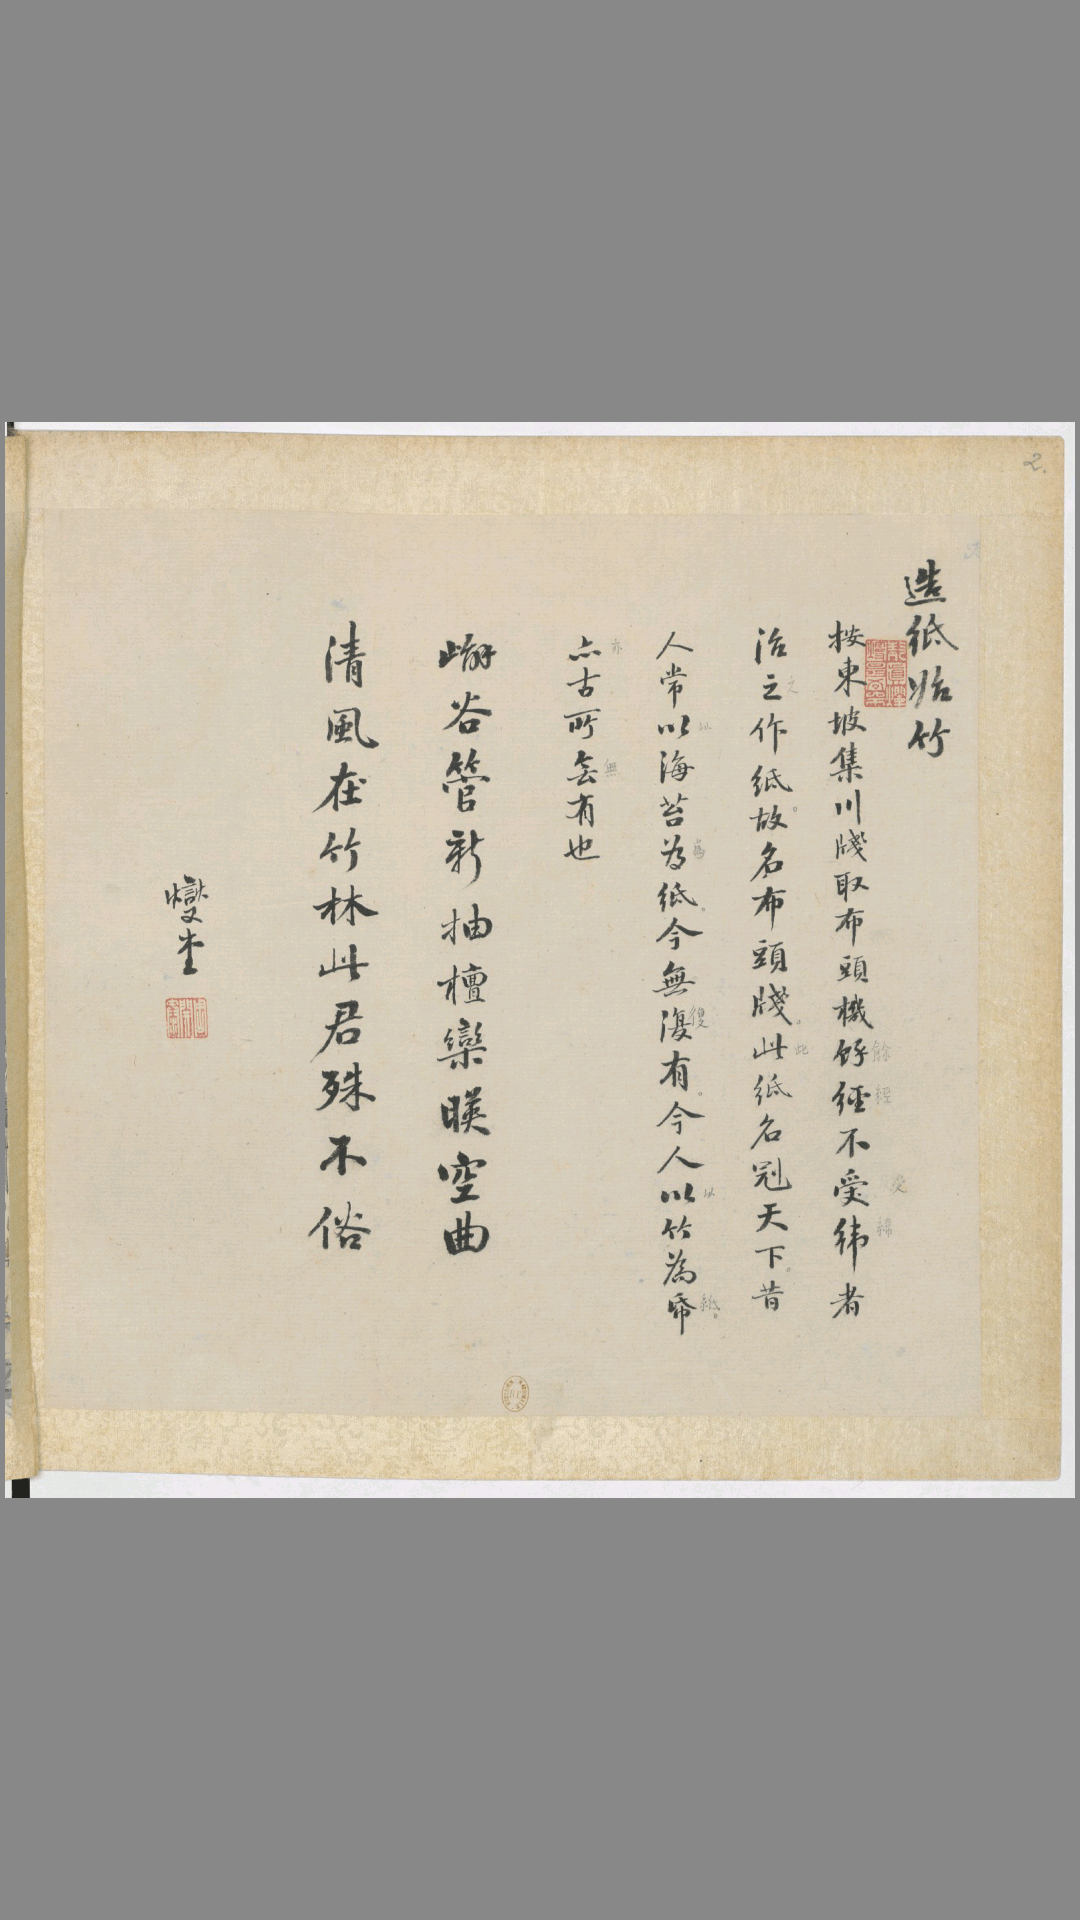 造紙始竹
按東坡集川牋取布頭機餘經不受緯者
治之作紙故名布頭牋此紙名冠天下昔
人常以海苔為紙今無復有今人以竹為紙
亦古所無有也
嶰谷管新抽檀欒暎空曲
清風在竹林此君殊不俗
燮堂
2.
亦
無
之
以
為
復
以
紙
此
餘
經
受
緯